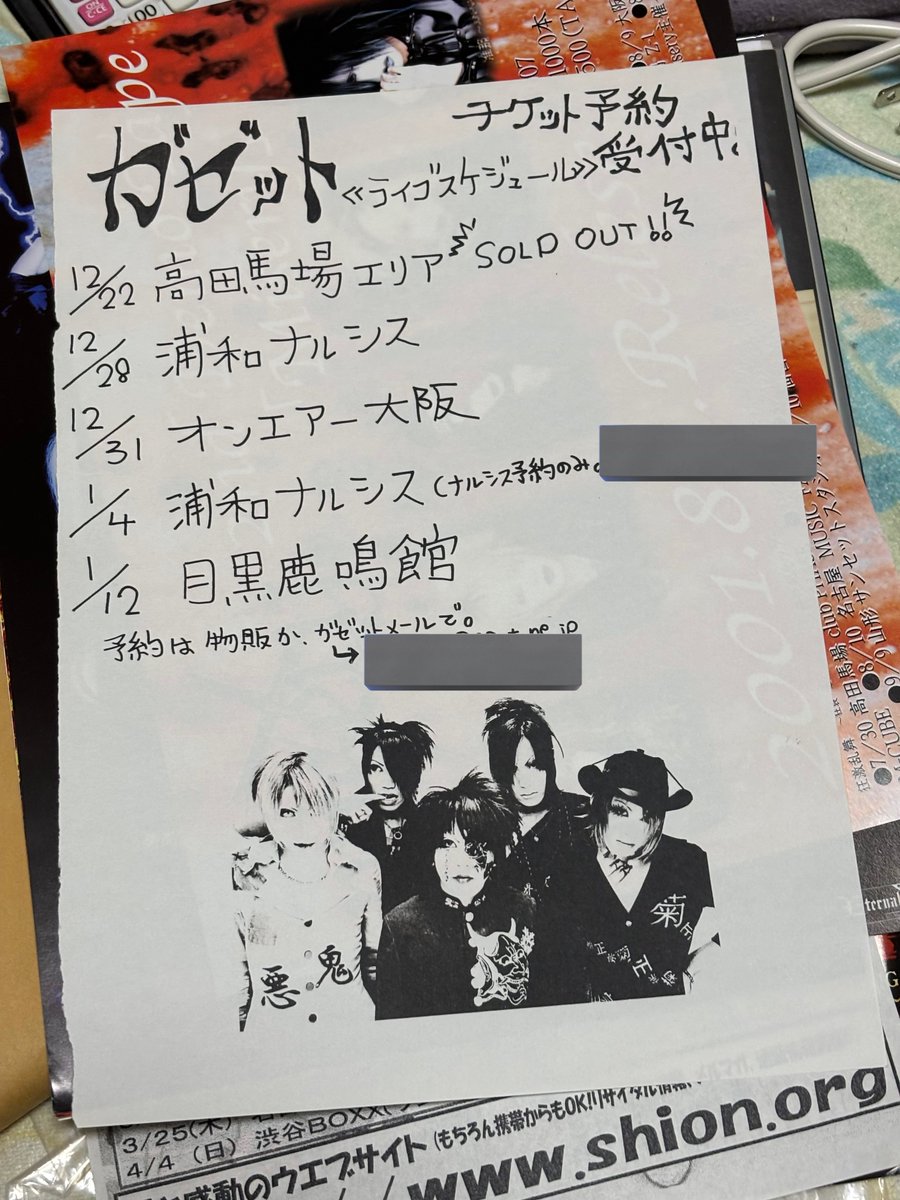 ガゼット
チケット予約
受付中!
≪ライブスケジュール≫
12/22 高田馬場エリア SOLD OUT!!
12/28 浦和ナルシス
12/31 オンエアー大阪
1/4 浦和ナルシス (ナルシス予約のみ。
1/12 目黒鹿鳴館
予約は物販か、ガゼットメールで。
↳
悪 鬼
菊
正
正
3/25(木)
4/4 (日) 渋谷BOXX
感動のウエブサイト (もちろん携帯からもOK!リサイタル情報、
www.shion.org
2001.8
.Release
100
ON
C·CE
07
1000本
8/9 大阪
7/30 高田馬場
8/10 名古屋 MUSIC
CUBE ●9/9 山形サンセットスタジオ
ternal